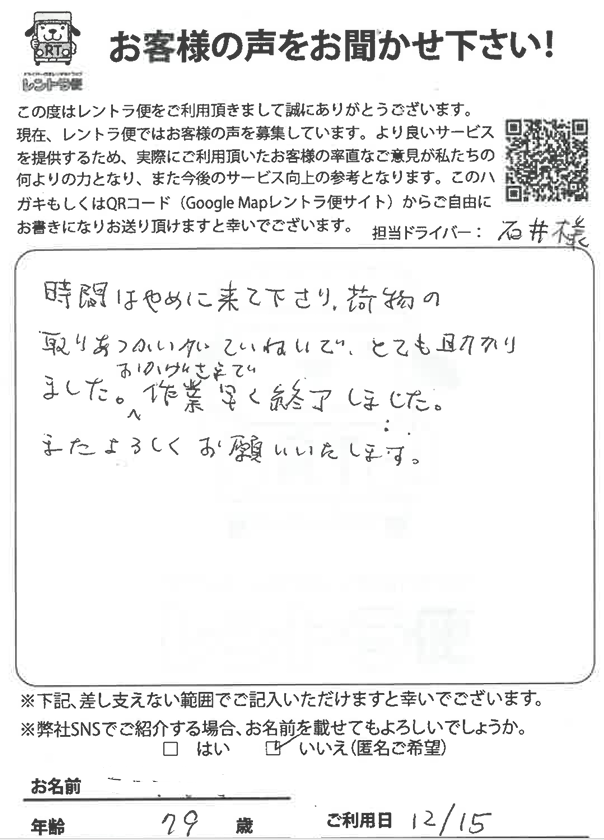 お客様の声をお聞かせ下さい!
RT
レントラ便
この度はレントラ便をご利用頂きまして誠にありがとうございます。
現在、レントラ便ではお客様の声を募集しています。より良いサービス
を提供するため、実際にご利用頂いたお客様の率直なご意見が私たちの
何よりの力となり、また今後のサービス向上の参考となります。このハ
ガキもしくはQRコード（Google Mapレントラ便サイト）からご自由に
お書きになりお送り頂けますと幸いでございます。
担当ドライバー： 石井様
時間はやめに来て下さり、荷物の
取りあつかいがていねいで、とても助かり
ました。おかげさまで作業早く終了しました。
またよろしくお願いいたします。
※下記、差し支えない範囲でご記入いただけますと幸いでございます。
※弊社SNSでご紹介する場合、お名前を載せてもよろしいでしょうか。
□ はい ☑ いいえ（匿名ご希望）
お名前
年齢 79 歳 ご利用日 12/15